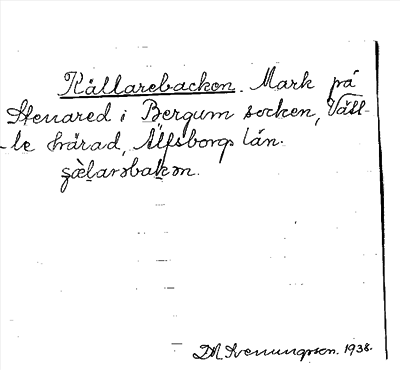 Källarebacken. Mark på
Stenared i Bergum socken, Vätt-
le härad, Älfsborgs län.
D.M. Svenungsson. 1938.